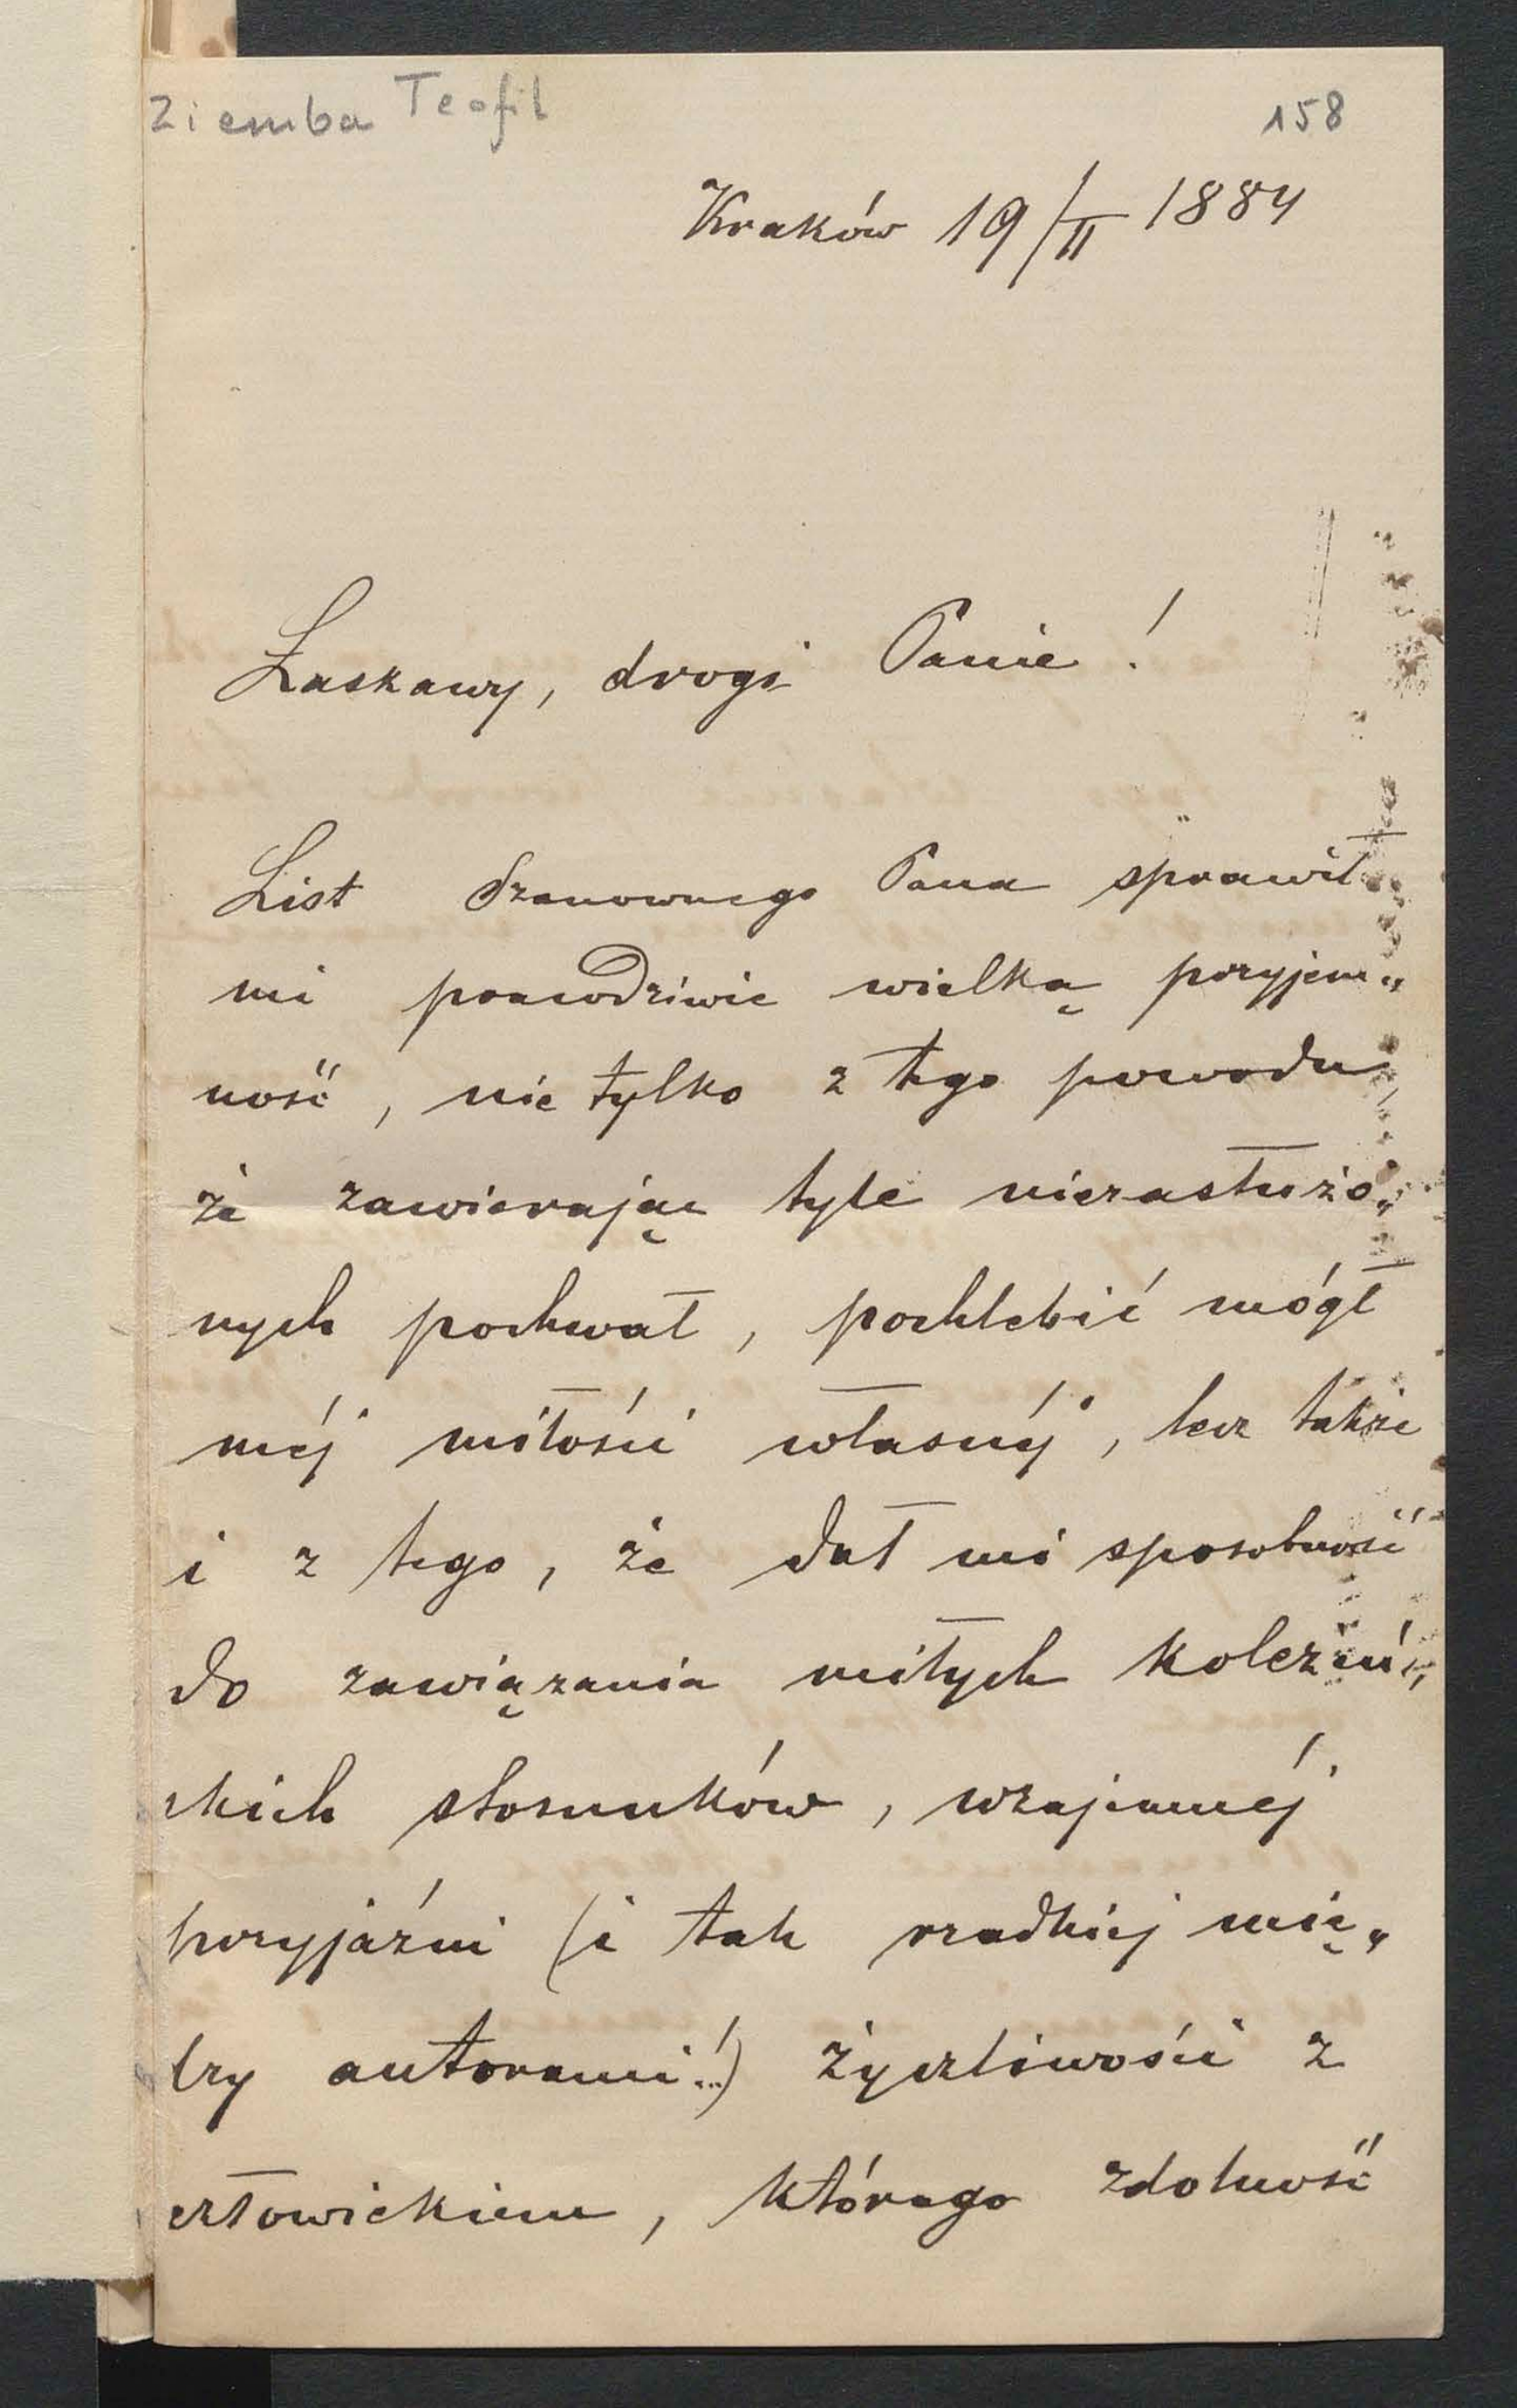 Ziemba Teofil
158
Kraków 19/II 1884
Łaskawy, drogi Panie!
List Szanownego Pana sprawił
mi prawdziwie wielką przyjem„
ność, nie tylko z tego powodu,
że zawierając tyle niezasłużo„
nych pochwał, pochlebić mógł
méj miłości własnéj, lecz także
i z tego, że dał mi sposobność
do zawiązania miłych koleżeń„
skich stosunków, wzajemnéj
przyjaźni (i tak rzadkiej mię„
dzy autorami!..) życzliwości z
człowiekiem, którego zdolność